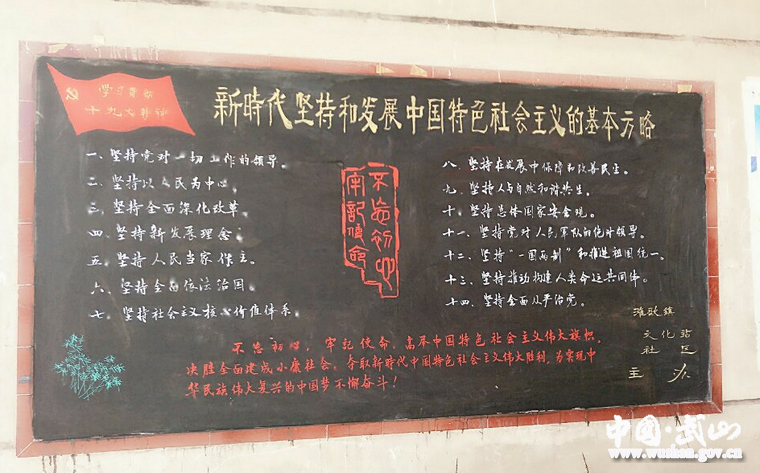 学习贯彻
十九大精神
新時代坚持和发展中国特色社会主义的基本方略
一、坚持党对一切工作的领导。
二、坚持以人民为中心。
三、坚持全面深化改革。
四、坚持新发展理念。
五、坚持人民当家作主。
六、坚持全面依法治国。
七、坚持社会主义核心价值体系。
不忘初心
牢记使命
八、坚持在发展中保障和改善民生。
九、坚持人与自然和谐共生。
十、坚持总体国家安全观。
十一、坚持党对人民军队的绝对领导。
十二、坚持“一国两制”和推进祖国统一。
十三、坚持推动构建人类命运共同体。
十四、坚持全面从严治党。
不忘初心，牢记使命，高举中国特色社会主义伟大旗帜，
决胜全面建成小康社会，夺取新時代中国特色社会主义伟大胜利，为实现中
华民族伟大复兴的中国梦不懈奋斗！
滩歌镇
文化站
社区
主办
中国·武山
www.wushan.gov.cn